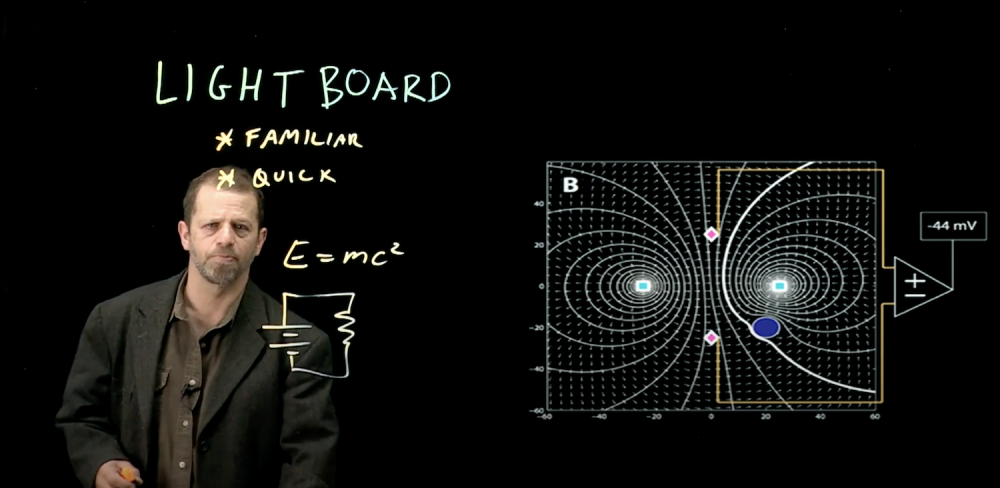 LIGHT BOARD
* FAMILIAR
* QUICK
E=mc²
B
-44 mV
+
−
40
20
0
-20
-40
-60
-60 -40 -20 0 20 40 60